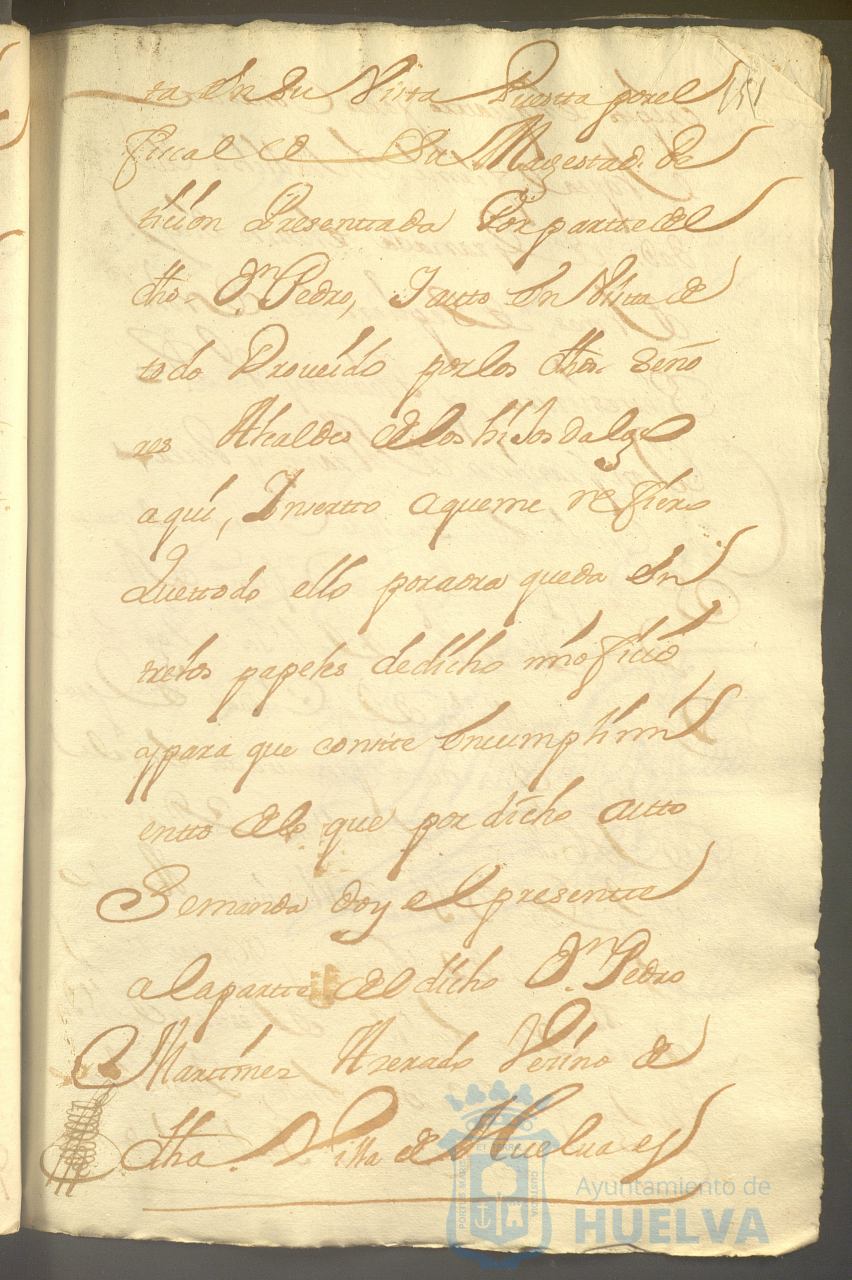 151
ta en su Vista Puesta por el
fiscal de Su Magestad. Pe
tiçion Presenttada Por partte del
dho. Dn. Pedro, Y autto En Vista de
todo Proueido por los dhos. Seño
res Alcaldes de los hijos dalgo
aqui, Insertto aqueme refiero
Quettodo ello poraora queda En
trelos papeles dedicho mioficio
yparaque conste Encumplimi
entto delo que por dicho autto
Semanda doy el presentte
alapartte del dicho Dn. Pedro
Martinez Arexado Veçino de
dha. Villa de Huelua en
Ayuntamiento de
HUELVA